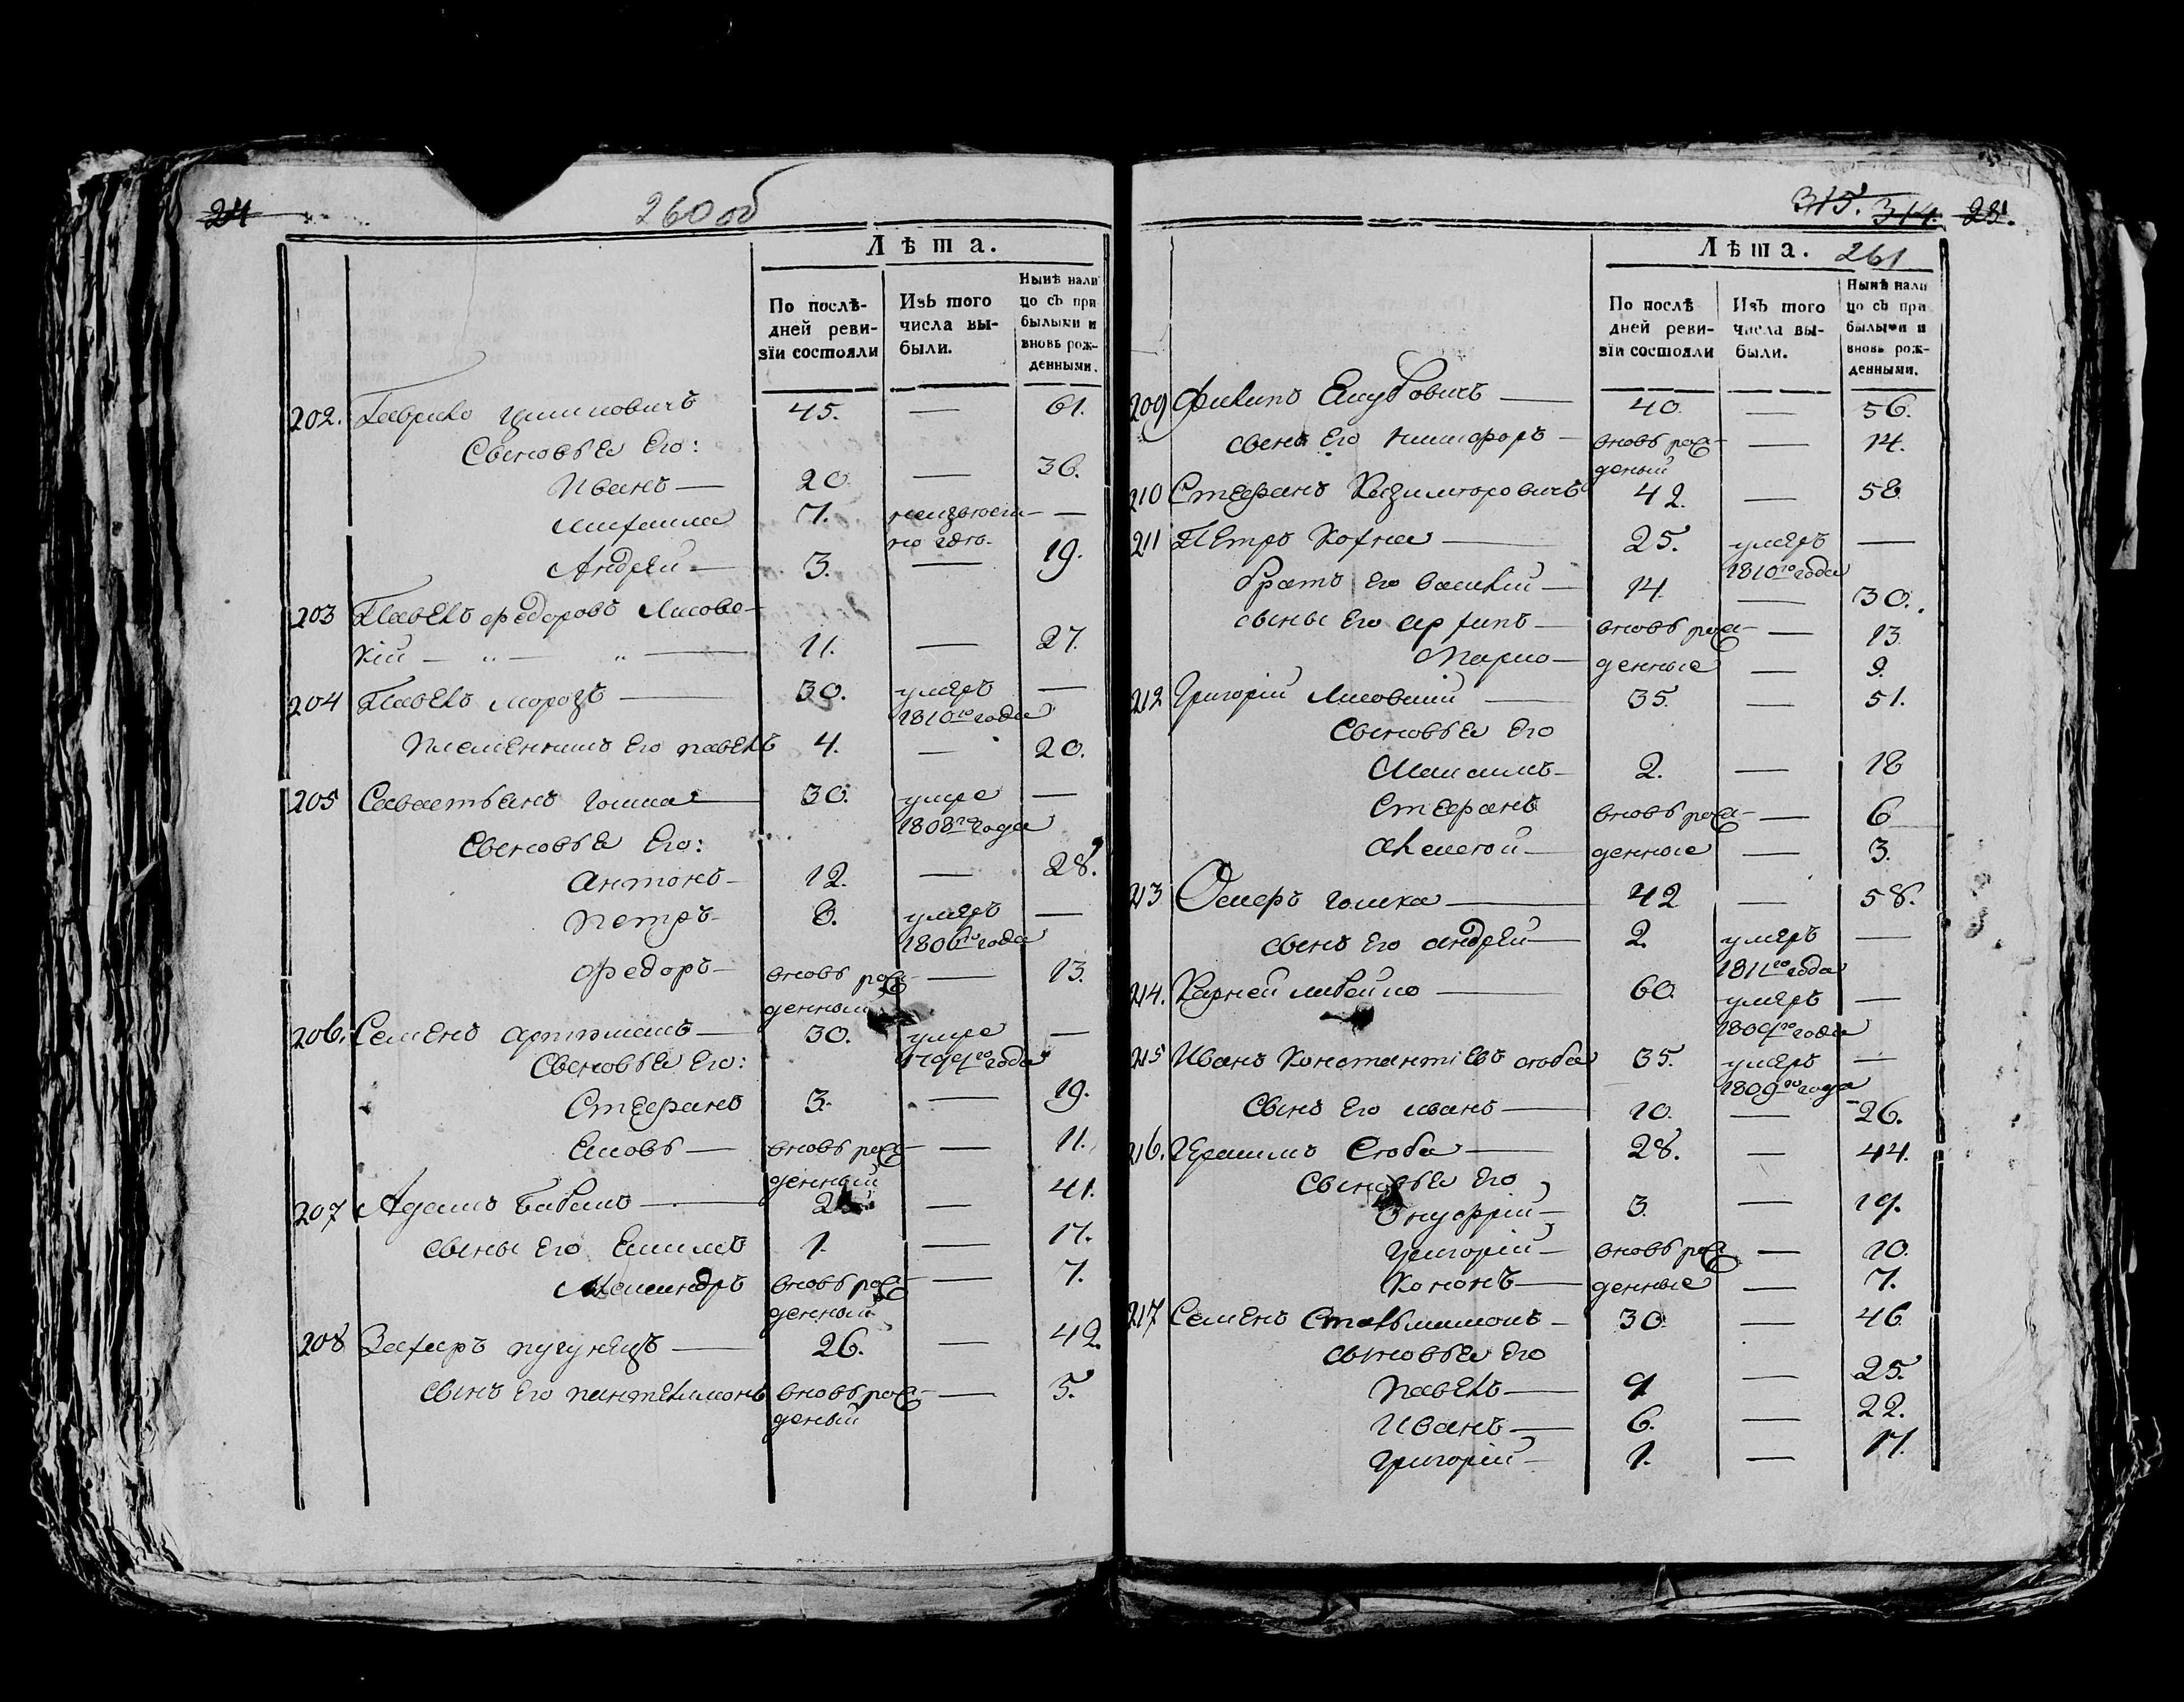 24
260 об
Лѣта.
По послѣ-
дней реви-
зїи состояли
Изъ того
числа вы-
были.
Нынѣ нали
цо съ при
былыми и
вновь рож-
денными.
202. Гаврило 45. — 61.
Сыновья Его:
Иванъ — 20 — 36.
Михаила 7. неизвест- —
но где.
Андрей — 3. — 19.
203 Павелъ федоровъ Лисовс-
кій — „ — „ — 11. — 27.
204 Павелъ морозъ — 30. умеръ —
1810го года
племянникъ Его павелъ 4. — 20.
205 Савастьянъ гомка — 30. умре —
1808го года
Сыновья Его:
антонъ — 12. — 28.
петръ — 8. умеръ —
1806го года
федоръ — вновь рож- — 13.
денный
206. Семенъ — 30. умре —
1799го года
Сыновья Его:
Стефанъ 3. — 19.
Яковъ — вновь рож- — 11.
денный
207 Адамъ — — 41.
сыны Его Екимъ 1. — 17.
вновь рож- — 7.
денный
208 Захаръ пугунецъ — 26. — 42.
сынъ Его пантелимонъ вновь рож- — 5.
деный
315. 314. 25.
261
Лѣта.
По послѣ
дней реви-
зїи состояли
Изъ того
числа вы-
были.
Нынѣ нали
цо съ при
былыми и
вновь рож-
денными.
209 Филипъ Якубовичъ — 40. — 56.
сынъ Его никифоръ — вновь рож- — 14.
деный
210 Стефанъ Казимировичъ 42. — 58
211 Петръ Кохна — 25. умеръ —
1810го года
братъ Его василій — 14. — 30.
сыны Его архипъ — вновь рож- — 13
Марко — денные — 9.
212 Григорій Лисовский — 35. — 51.
Сыновья Его
Максимъ — 2. — 18
Стефанъ вновь рож- — 6
Алексей — денные — 3.
213 гомка — 42 — 58.
сынъ Его андрей — 2. умеръ —
1811го года
214. Карней — 60. умеръ —
1809го года
215 Иванъ Константіевъ скоба 35. умеръ —
1809го года
Сынъ Его иванъ — 10. — 26.
216. Герасимъ Скоба — 28. — 44.
Сыновья Его
Онуфрій — 3. — 19.
Григорій — вновь рож — 10.
Кононъ — денные — 7.
217 Семенъ — 30. — 46
сыновья Его
павелъ — 9. — 25.
Иванъ — 6. — 22.
Григорій — 1. — 17.